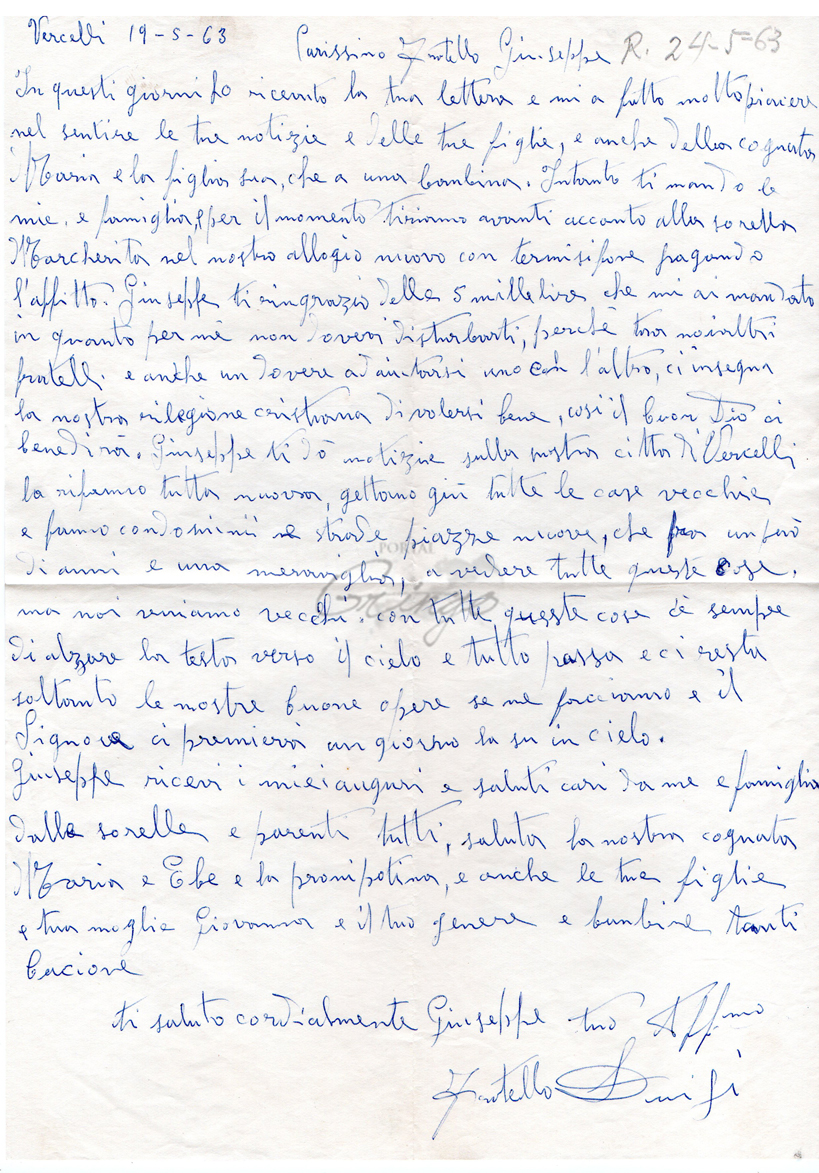 Vercelli 19-5-63
Carissimo Fratello Giuseppe R. 24-5-63
In questi giorni ho ricevuto la tua lettera e mi a fatto molto piacere
nel sentire le tue notizie e delle tue figlie, e anche della cognata
Maria e la figlia sua, che a una bambina. Intanto ti mando le
mie. e famiglia, per il momento tiriamo avanti accanto alla sorella
Marcherita nel nostro allogio nuovo con termisifone pagando
l'affitto. Giuseppe ti ringrazio della 5 mille lire che mi ai mandato
in quanto per me non dovevi disturbarti, perchè tra noialtri
fratelli e anche un dovere ad aiutarsi uno con l'altro, ci insegna
la nostra riligione cristiana di volersi bene, cosi il buon Dio ci
benedirà. Giuseppe ti dò notizie sulla nostra citta di Vercelli
la rifanno tutta nuova, gettano giù tutte le case vecchie
e fanno condominii e strade piazze nuove, che fra un pò
di anni e una meraviglia, a vedere tutte queste cose.
ma noi veniamo vecchi. con tutte queste cose c'è sempre
di alzare la testa verso il cielo e tutto passa e ci resta
soltanto le nostre buone opere se ne facciamo e il
Signore ci premierà un giorno la su in cielo.
Giuseppe ricevi i miei auguri e saluti cari da me e famiglia
dalle sorelle e parenti tutti, saluta la nostra cognata
Maria e Ebe e la pronipotina, e anche le tue figlie
e tua moglie Giovanna e il tuo genere e bambine tanti
bacione
ti saluto cordialmente Giuseppe tuo Affmo
Fratello Luigi
PORTAL